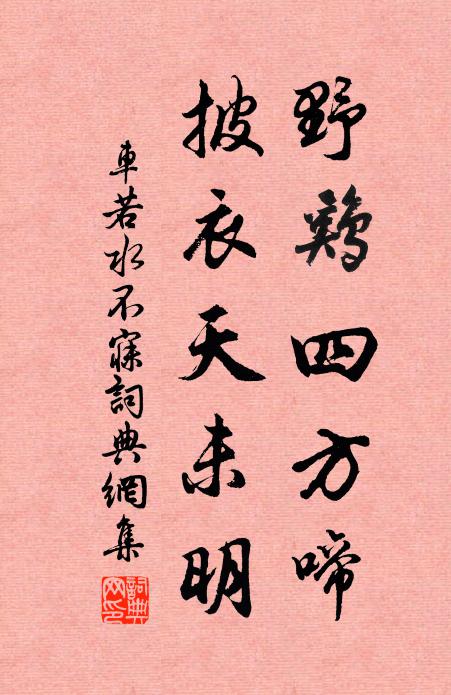 野鷄四方啼
披衣天未明
車若水不寐詞典網集
詞典網印